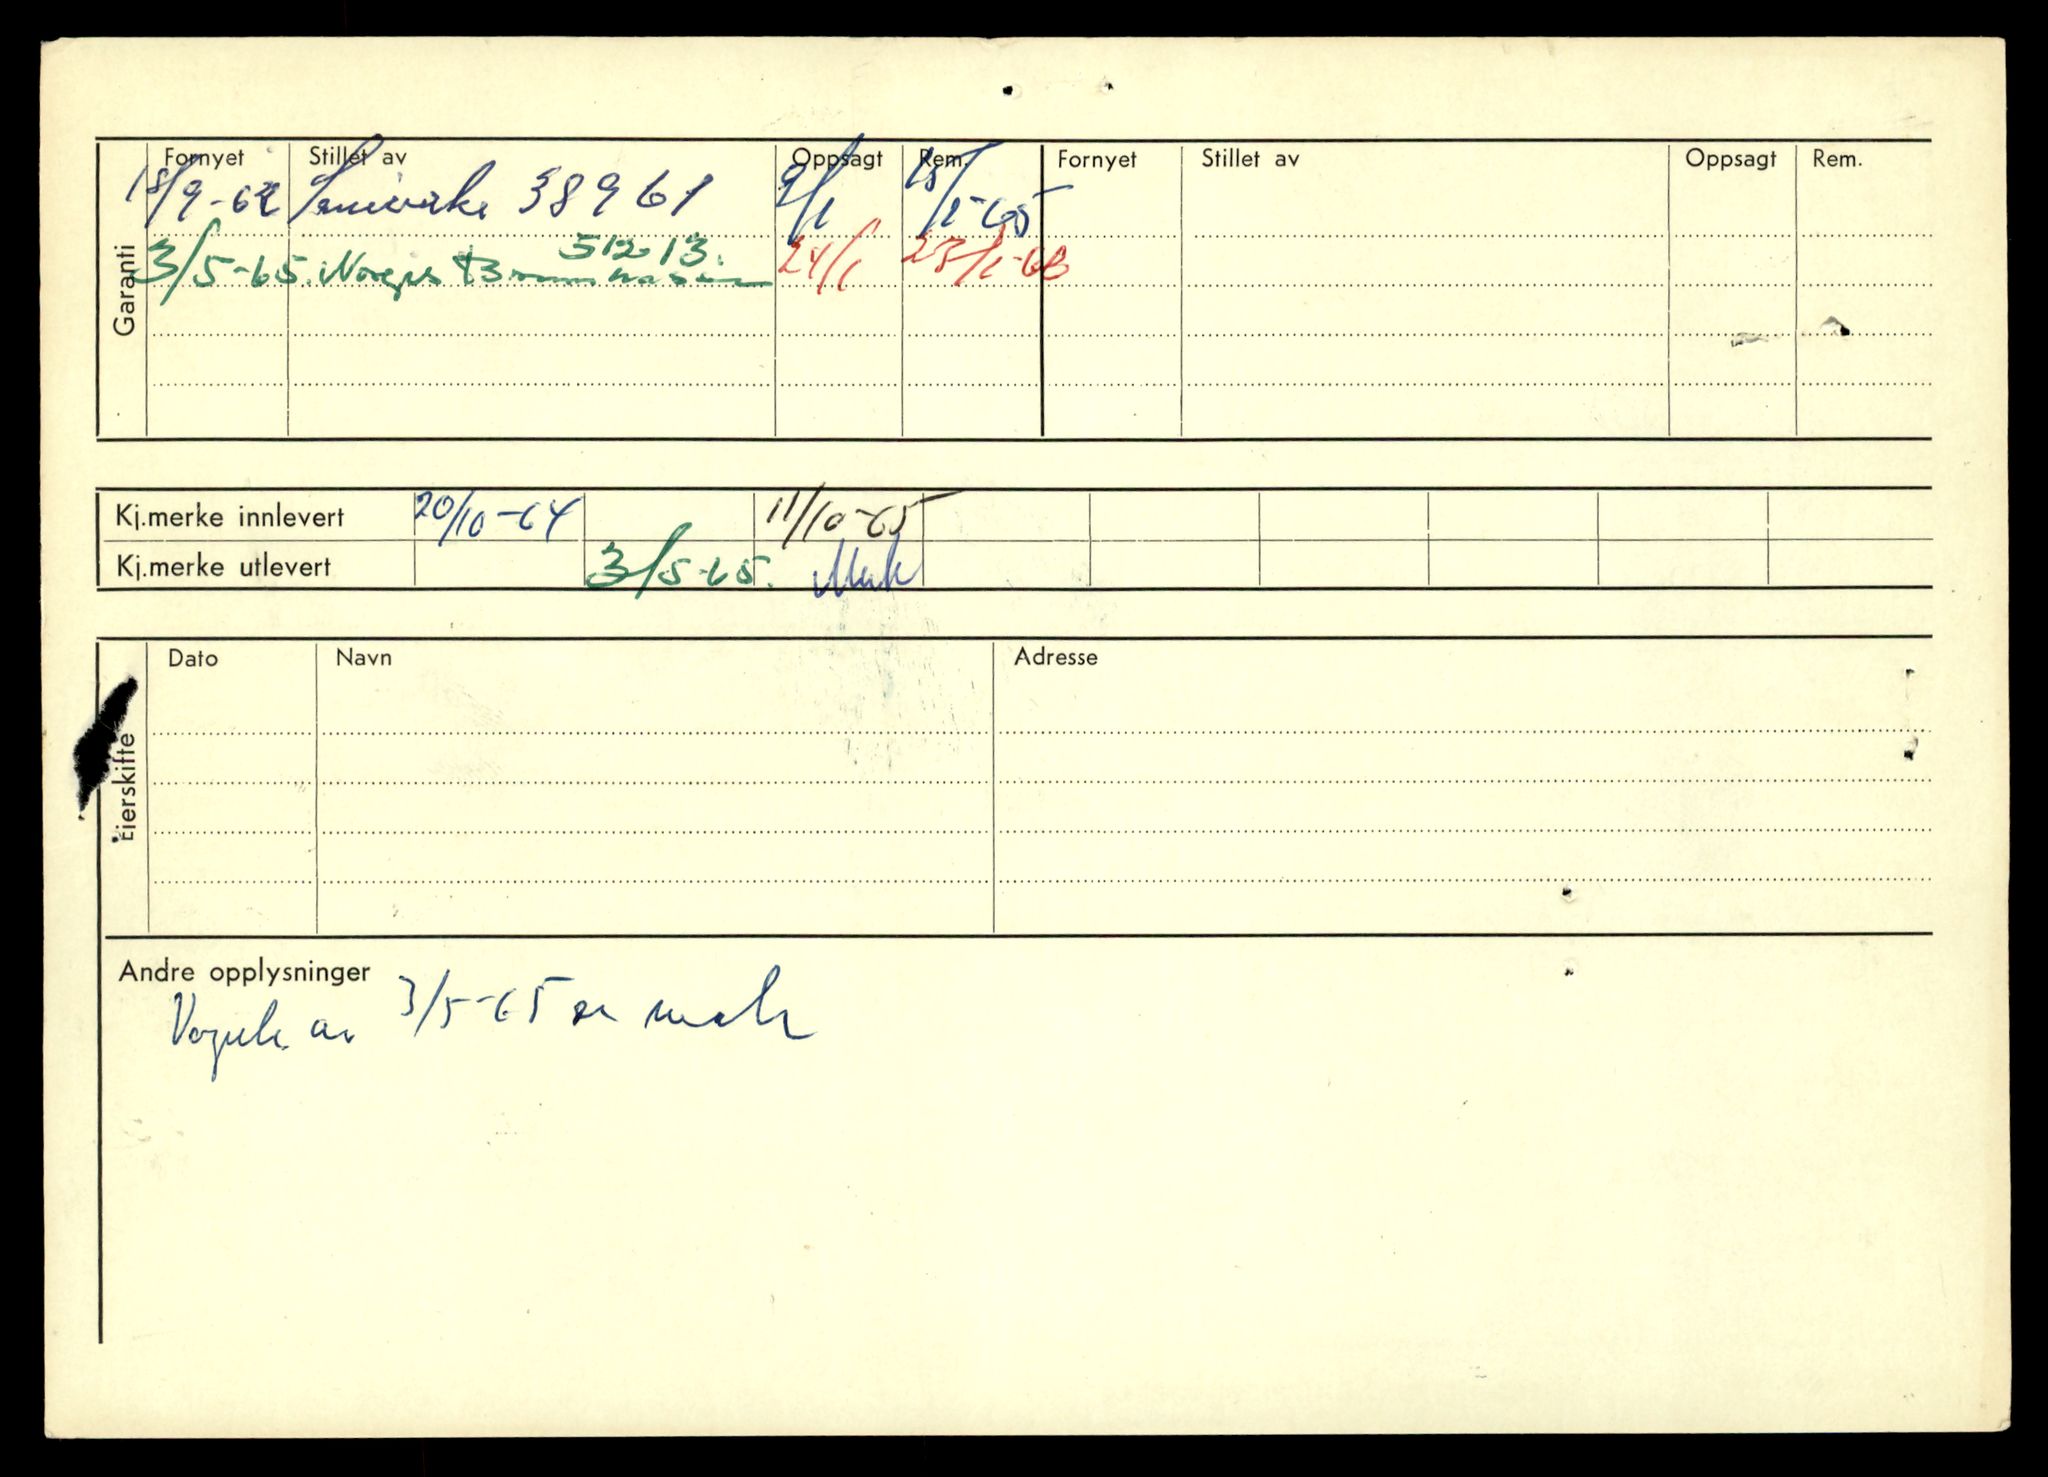 Garanti
Fornyet Stillet av Oppsagt Rem. Fornyet Stillet av Oppsagt Rem.
18/9-62 38961 9/1 18/1-65
512-13.
3/5-65. Norges 24/1 23/1-68
Kj.merke innlevert 20/10-64 11/10-65
Kj.merke utlevert 3/5-65.
Eierskifte
Dato Navn Adresse
Andre opplysninger
3/5-65